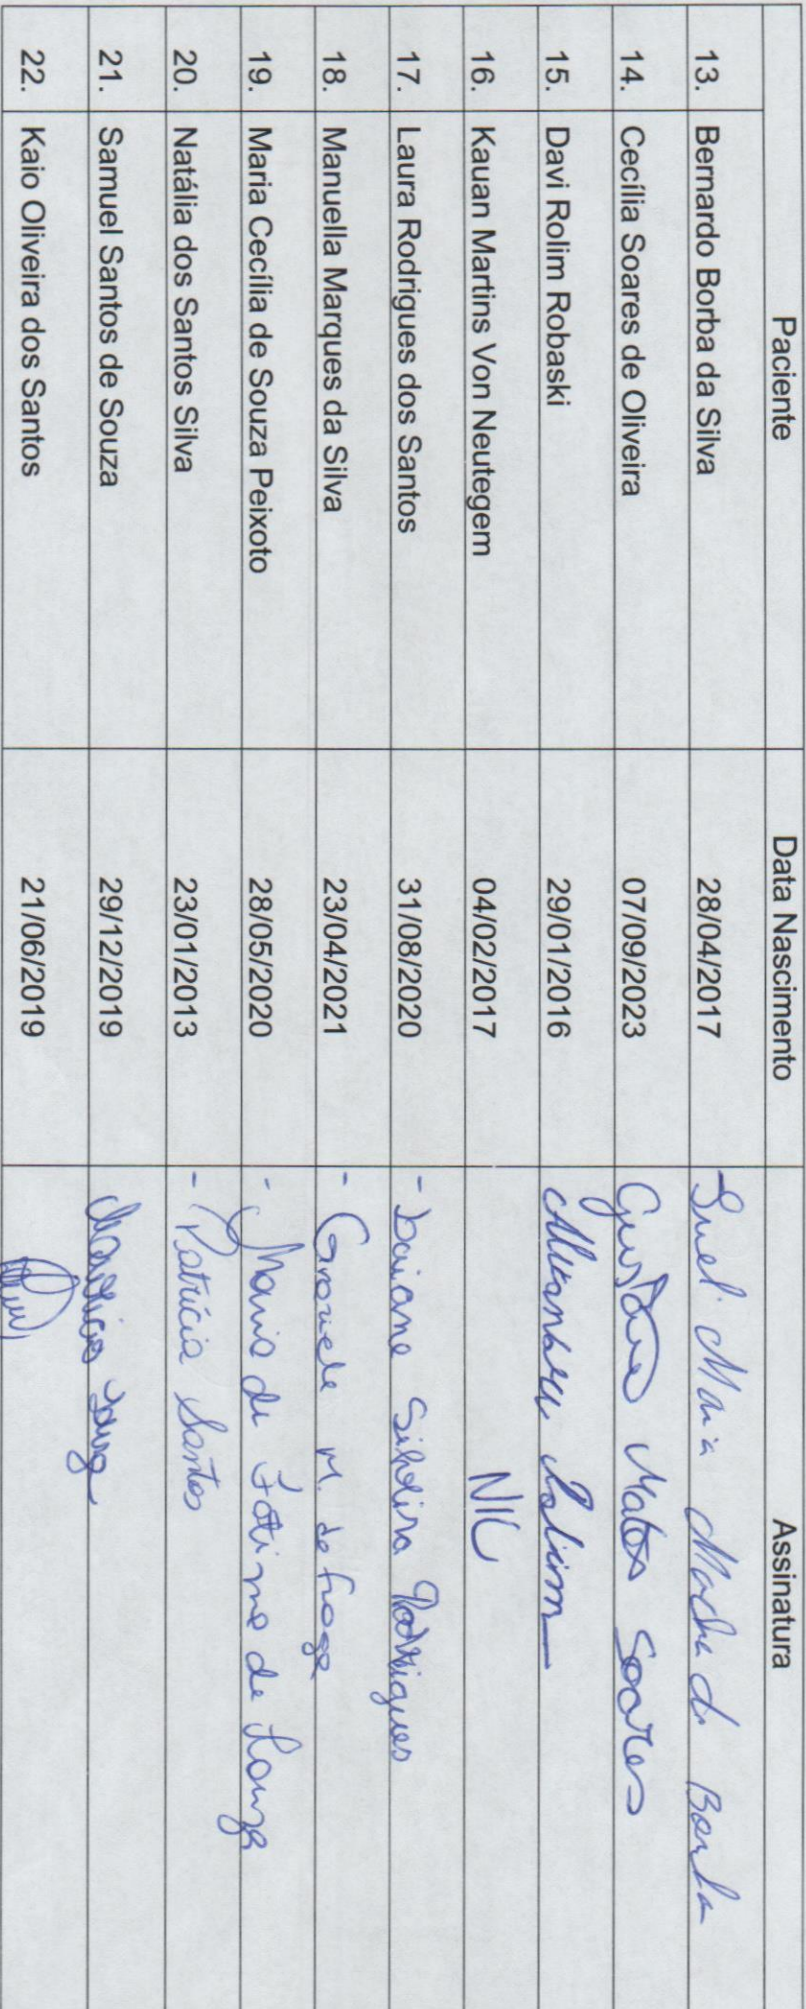 Paciente Data Nascimento Assinatura
13. Bernardo Borba da Silva 28/04/2017 Sueli Maria Machado Borba
14. Cecília Soares de Oliveira 07/09/2023 Gustavo Matos Soares
15. Davi Rolim Robaski 29/01/2016 Rolim
16. Kauan Martins Von Neutegem 04/02/2017
17. Laura Rodrigues dos Santos 31/08/2020 - Daiane Silveira Rodrigues
18. Manuella Marques da Silva 23/04/2021 - M. de
19. Maria Cecília de Souza Peixoto 28/05/2020 - Maria de Fátima de Souza
20. Natália dos Santos Silva 23/01/2013 - Patrícia Santos
21. Samuel Santos de Souza 29/12/2019
22. Kaio Oliveira dos Santos 21/06/2019